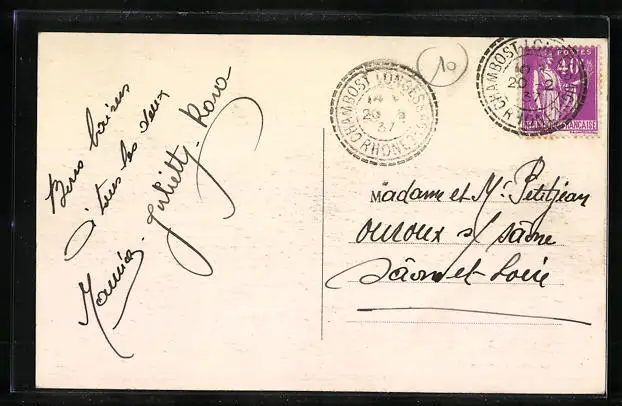 Bons baisers
à tous les deux
Maurice - Juliette - Rona
CHAMBOST-LONGESSAIGNE
20 - 2
37
RHONE
10
CHAMBOST-LON
20 2
37
POSTES
40
FRANÇAISE
Madame et Mr Petitjean
Ouroux s/ Saône
Saône-et-Loire